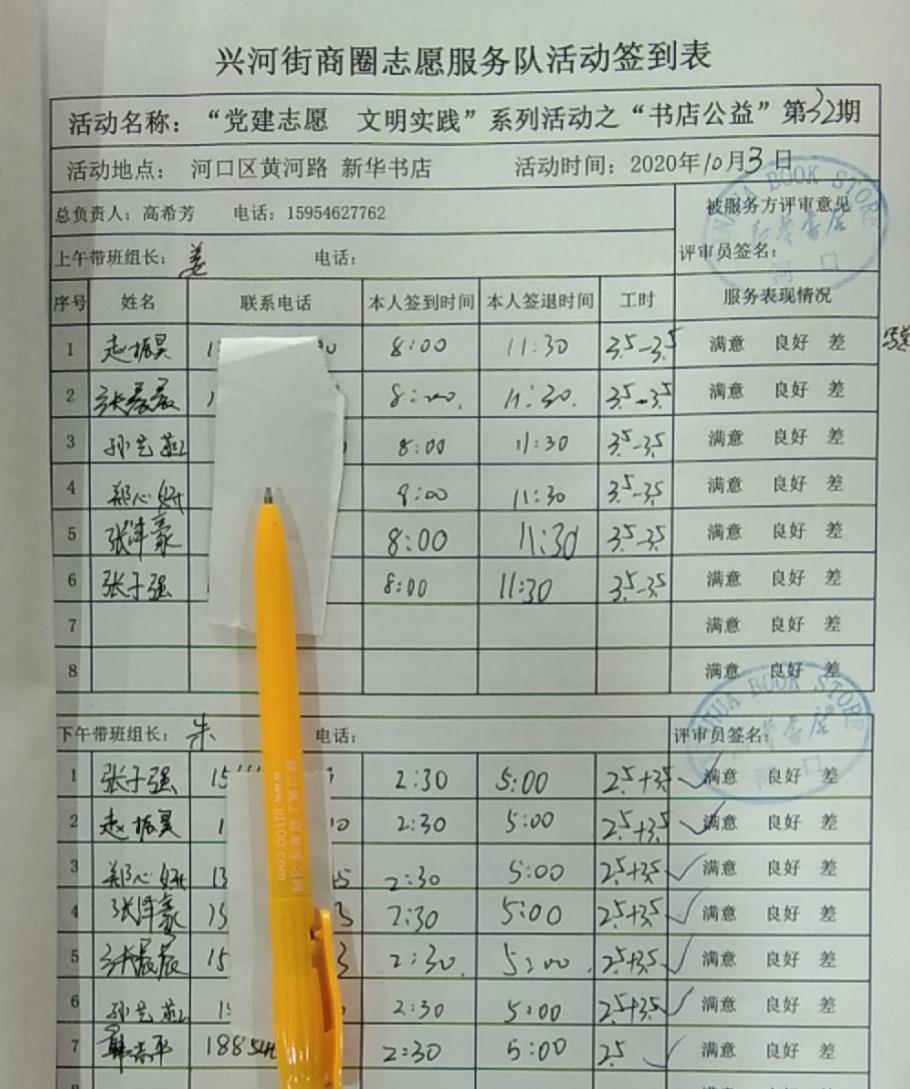 兴河街商圈志愿服务队活动签到表
活动名称：“党建志愿 文明实践”系列活动之“书店公益”第32期
活动地点： 河口区黄河路 新华书店 活动时间：2020年10月3日
总负责人：高希芳 电话：15954627762 被服务方评审意见
上午带班组长：姜 电话： 评审员签名：
序号 姓名 联系电话 本人签到时间 本人签退时间 工时 服务表现情况
1 赵振昊 8:00 11:30 3.5-3.5 满意 良好 差
2 张晨晨 8:00. 11:30. 3.5-3.5 满意 良好 差
3 孙艺 8:00 11:30 3.5-3.5 满意 良好 差
4 郑心妍 8:00 11:30 3.5-3.5 满意 良好 差
5 张泽豪 8:00 11:30 3.5-3.5 满意 良好 差
6 张子强 8:00 11:30 3.5-3.5 满意 良好 差
7 满意 良好 差
8 满意 良好 差
下午带班组长：朱 电话： 评审员签名：
1 张子强 15 2:30 5:00 2.5+3.5 ✓ 满意 良好 差
2 赵振昊 1 2:30 5:00 2.5+3.5 ✓ 满意 良好 差
3 郑心妍 13 2:30 5:00 2.5+3.5 ✓ 满意 良好 差
4 张泽豪 15 2:30 5:00 2.5+3.5 ✓ 满意 良好 差
5 张晨晨 15 2:30. 5:00. 2.5+3.5 ✓ 满意 良好 差
6 孙艺 15 2:30 5:00 2.5+3.5 ✓ 满意 良好 差
7 韩志平 188 2:30 5:00 2.5 ✓ 满意 良好 差
BOOK STORE
新华书店
河口
HUA BOOK STORE
www.jd100.com